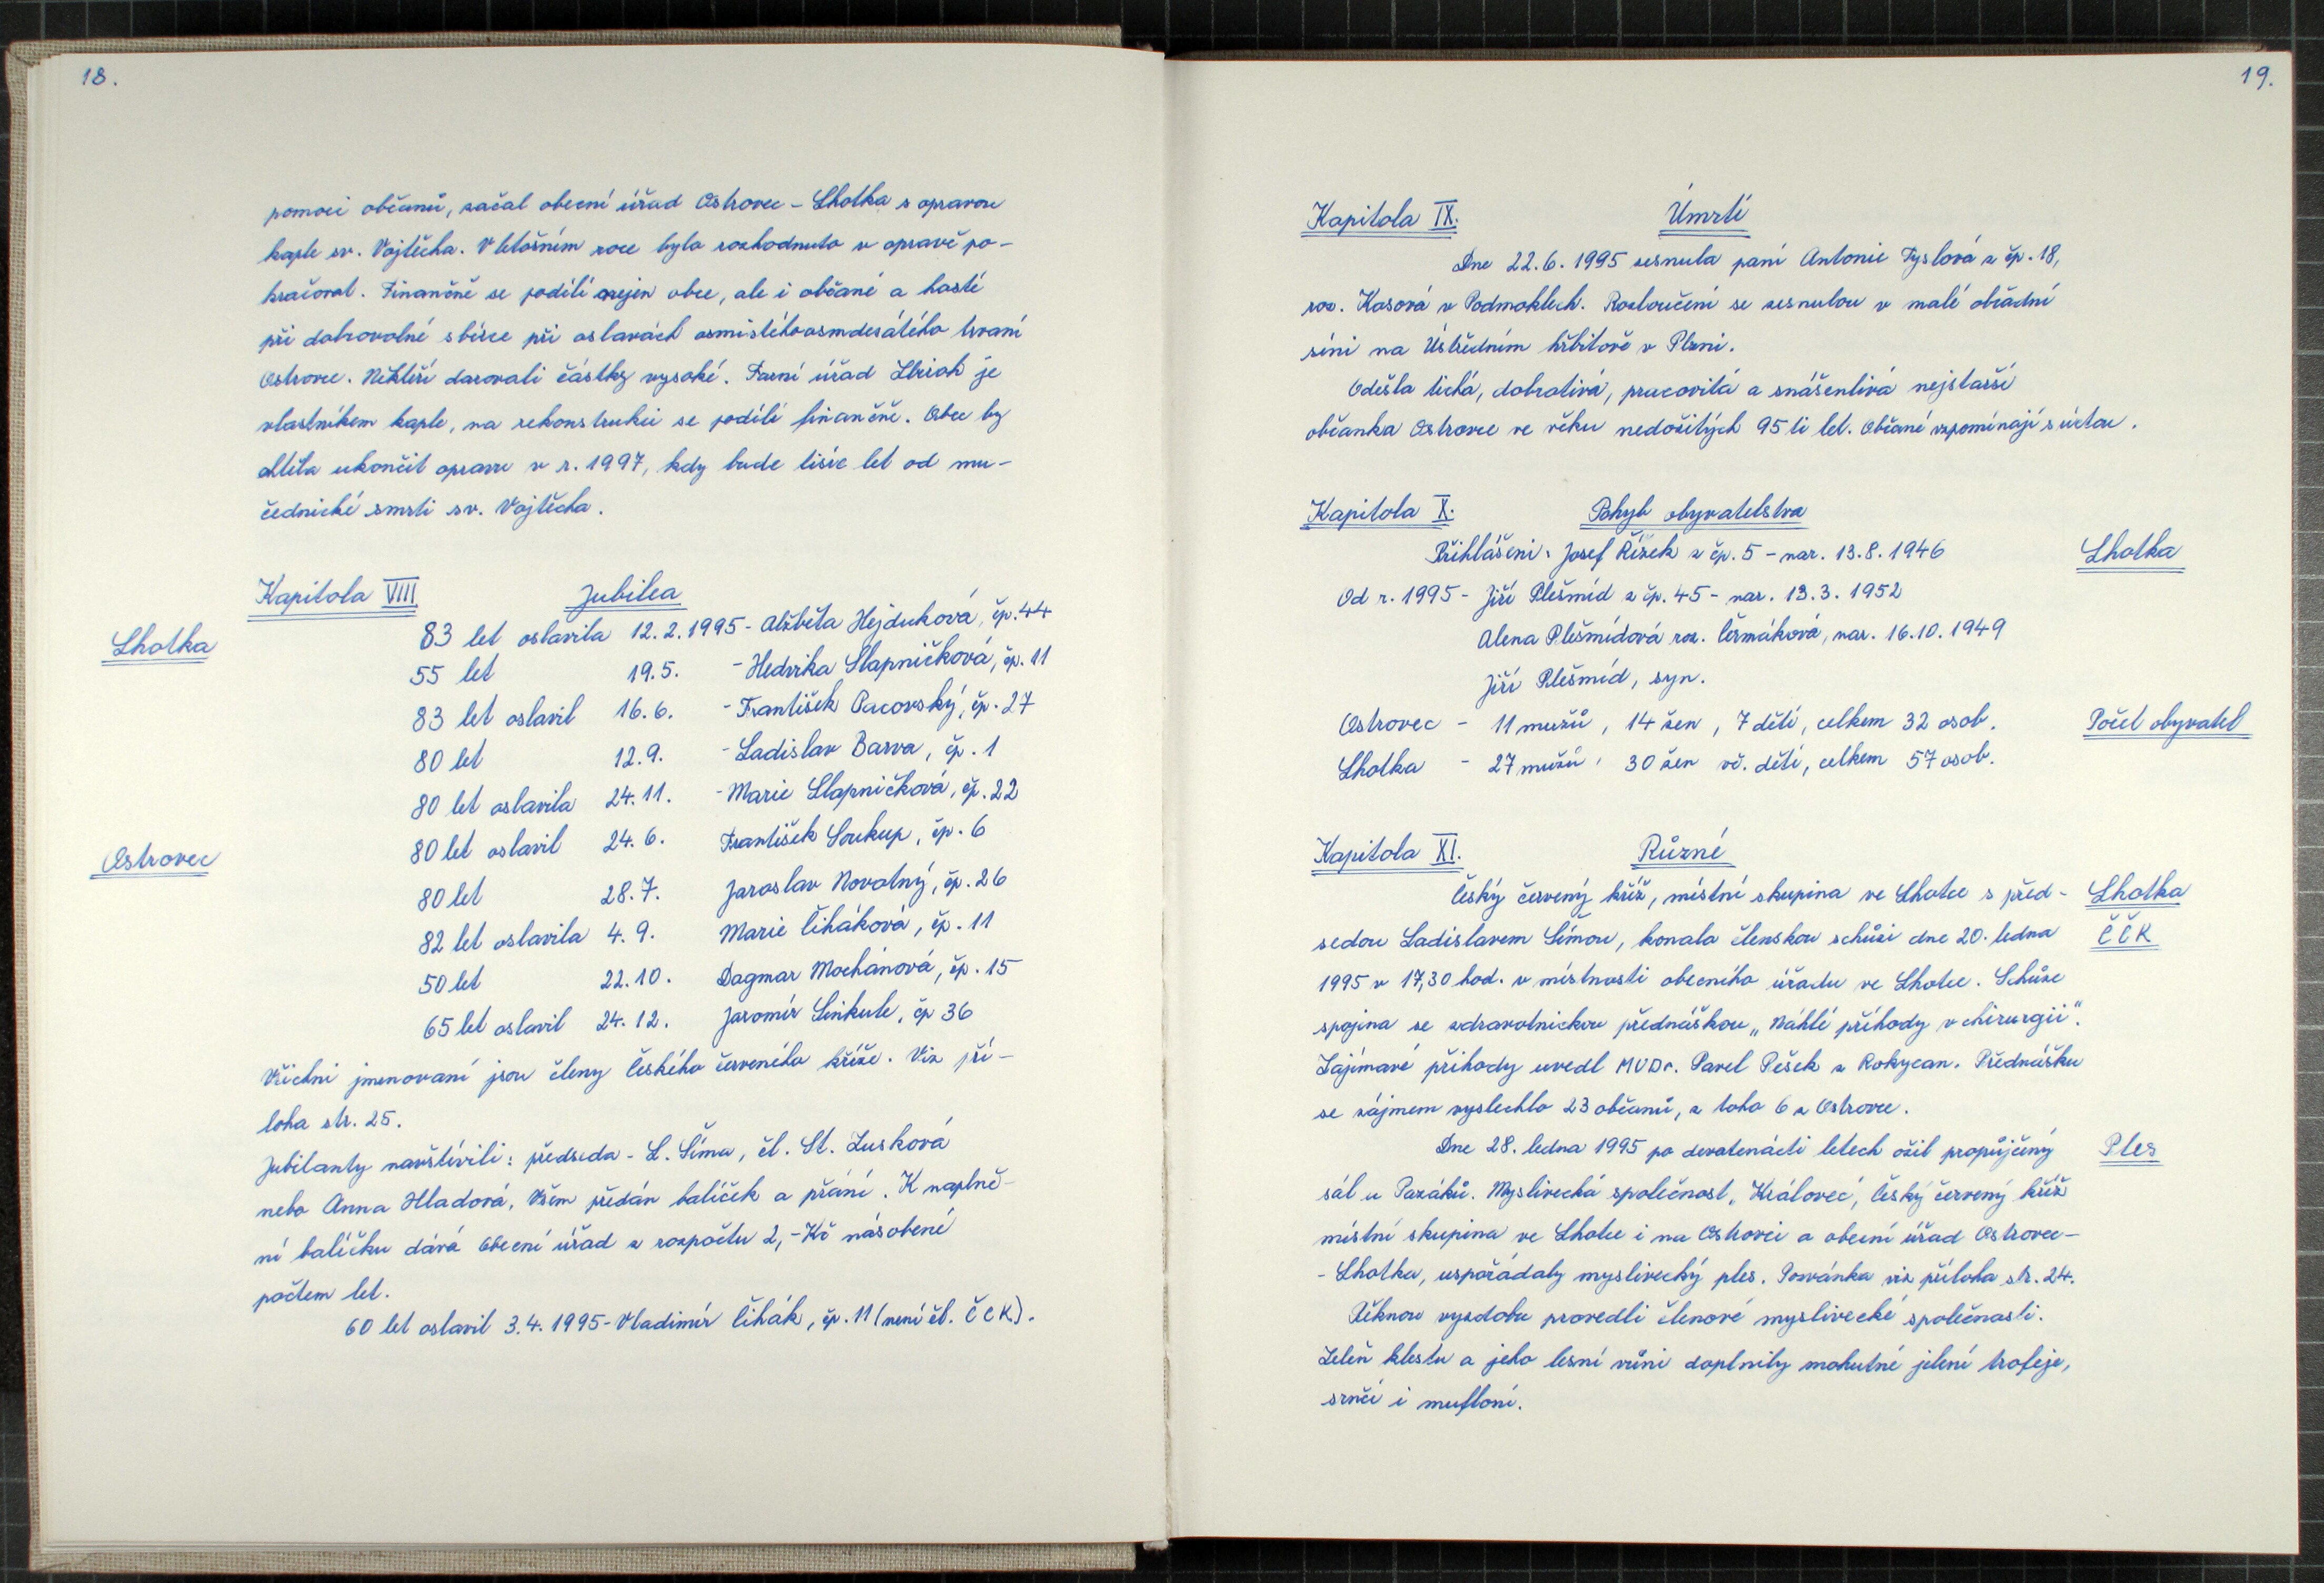 18.
pomoci občanů, začal obecní úřad Ostrovec - Lhotka s opravou
kaple sv. Vojtěcha. V letošním roce bylo rozhodnuto v opravě po-
kračovat. Finančně se podílí nejen obec, ale i občané a hosté
při dobrovolné sbírce při oslavách osmistéhoosmdesátého trvaní
Ostrovce. Někteří darovali částky vysoké. Farní úřad Zbiroh je
vlastníkem kaple, na rekonstrukci se podílí finančně. Obec by
chtěla ukončit opravu v r. 1997, kdy bude tisíc let od mu-
čednické smrti sv. Vojtěcha.
Kapitola VIII Jubilea
Lhotka 83 let oslavila 12.2.1995 - Alžběta Hejduková, čp. 44
55 let 19.5. - Hedvika Slapničková, čp. 11
83 let oslavil 16.6. - František Pacovský, čp. 27
80 let 12.9. - Ladislav Barva, čp. 1
80 let oslavila 24.11. - Marie Slapničková, čp. 22
Ostrovec 80 let oslavil 24.6. František Soukup, čp. 6
80 let 28.7. Jaroslav Novotný, čp. 26
82 let oslavila 4.9. Marie Čiháková, čp. 11
50 let 22.10. Dagmar Mochánová, čp. 15
65 let oslavil 24.12. Jaromír Sinkule, čp 36
Všichni jmenovaní jsou členy Českého červeného kříže. Viz pří-
loha str. 25.
Jubilanty navštívili: předseda - L. Šíma, čl. St. Zusková
nebo Anna Hladová. Všem předán balíček a přání. K naplně-
ní balíčku dává Obecní úřad z rozpočtu 2,- Kč násobené
počtem let.
60 let oslavil 3.4.1995 - Vladimír Čihák, čp. 11 (není čl. ČČK).
19.
Kapitola IX. Úmrtí
Dne 22.6.1995 zesnula paní Antonie Tyslová z čp. 18,
roz. Kasová v Podmoklech. Rozloučení se zesnulou v malé obřadní
síni na Ústředním hřbitově v Plzni.
Odešla tichá, dobrotivá, pracovitá a snášenlivá nejstarší
občanka Ostrovce ve věku nedožitých 95ti let. Občané vzpomínají s úctou.
Kapitola X. Pohyb obyvatelstva
Přihlášeni: Josef Řízek z čp. 5 - nar. 13.8.1946 Lhotka
Od r. 1995 - Jiří Plešmíd z čp. 45 - nar. 13.3.1952
Alena Plešmídová roz. Čermáková, nar. 16.10.1949
Jiří Plešmíd, syn.
Ostrovec - 11 mužů, 14 žen, 7 dětí, celkem 32 osob. Počet obyvatel
Lhotka - 27 mužů, 30 žen vč. dětí, celkem 57 osob.
Kapitola XI. Různé
Český červený kříž, místní skupina ve Lhotce s před- Lhotka
sedou Ladislavem Šímou, konala členskou schůzi dne 20. ledna ČČK
1995 v 17,30 hod. v místnosti obecního úřadu ve Lhotce. Schůze
spojina se zdravotnickou přednáškou „Náhlé příhody v chirurgii“.
Zajímavé příhody uvedl MUDr. Pavel Pešek z Rokycan. Přednášku
se zájmem vyslechlo 23 občanů, z toho 6 z Ostrovce.
Dne 28. ledna 1995 po devatenácti letech ožil propůjčený Ples
sál u Pazáků. Myslivecká společnost „Královec“, Český červený kříž
místní skupina ve Lhotce i na Ostrovci a obecní úřad Ostrovec-
- Lhotka, uspořádaly myslivecký ples. Pozvánka viz příloha str. 24.
Pěknou vyzdobu provedli členové myslivecké společnosti.
Zeleň klestu a jeho lesní vůni doplnily mohutné jelení trofeje,
srnčí i mufloní.